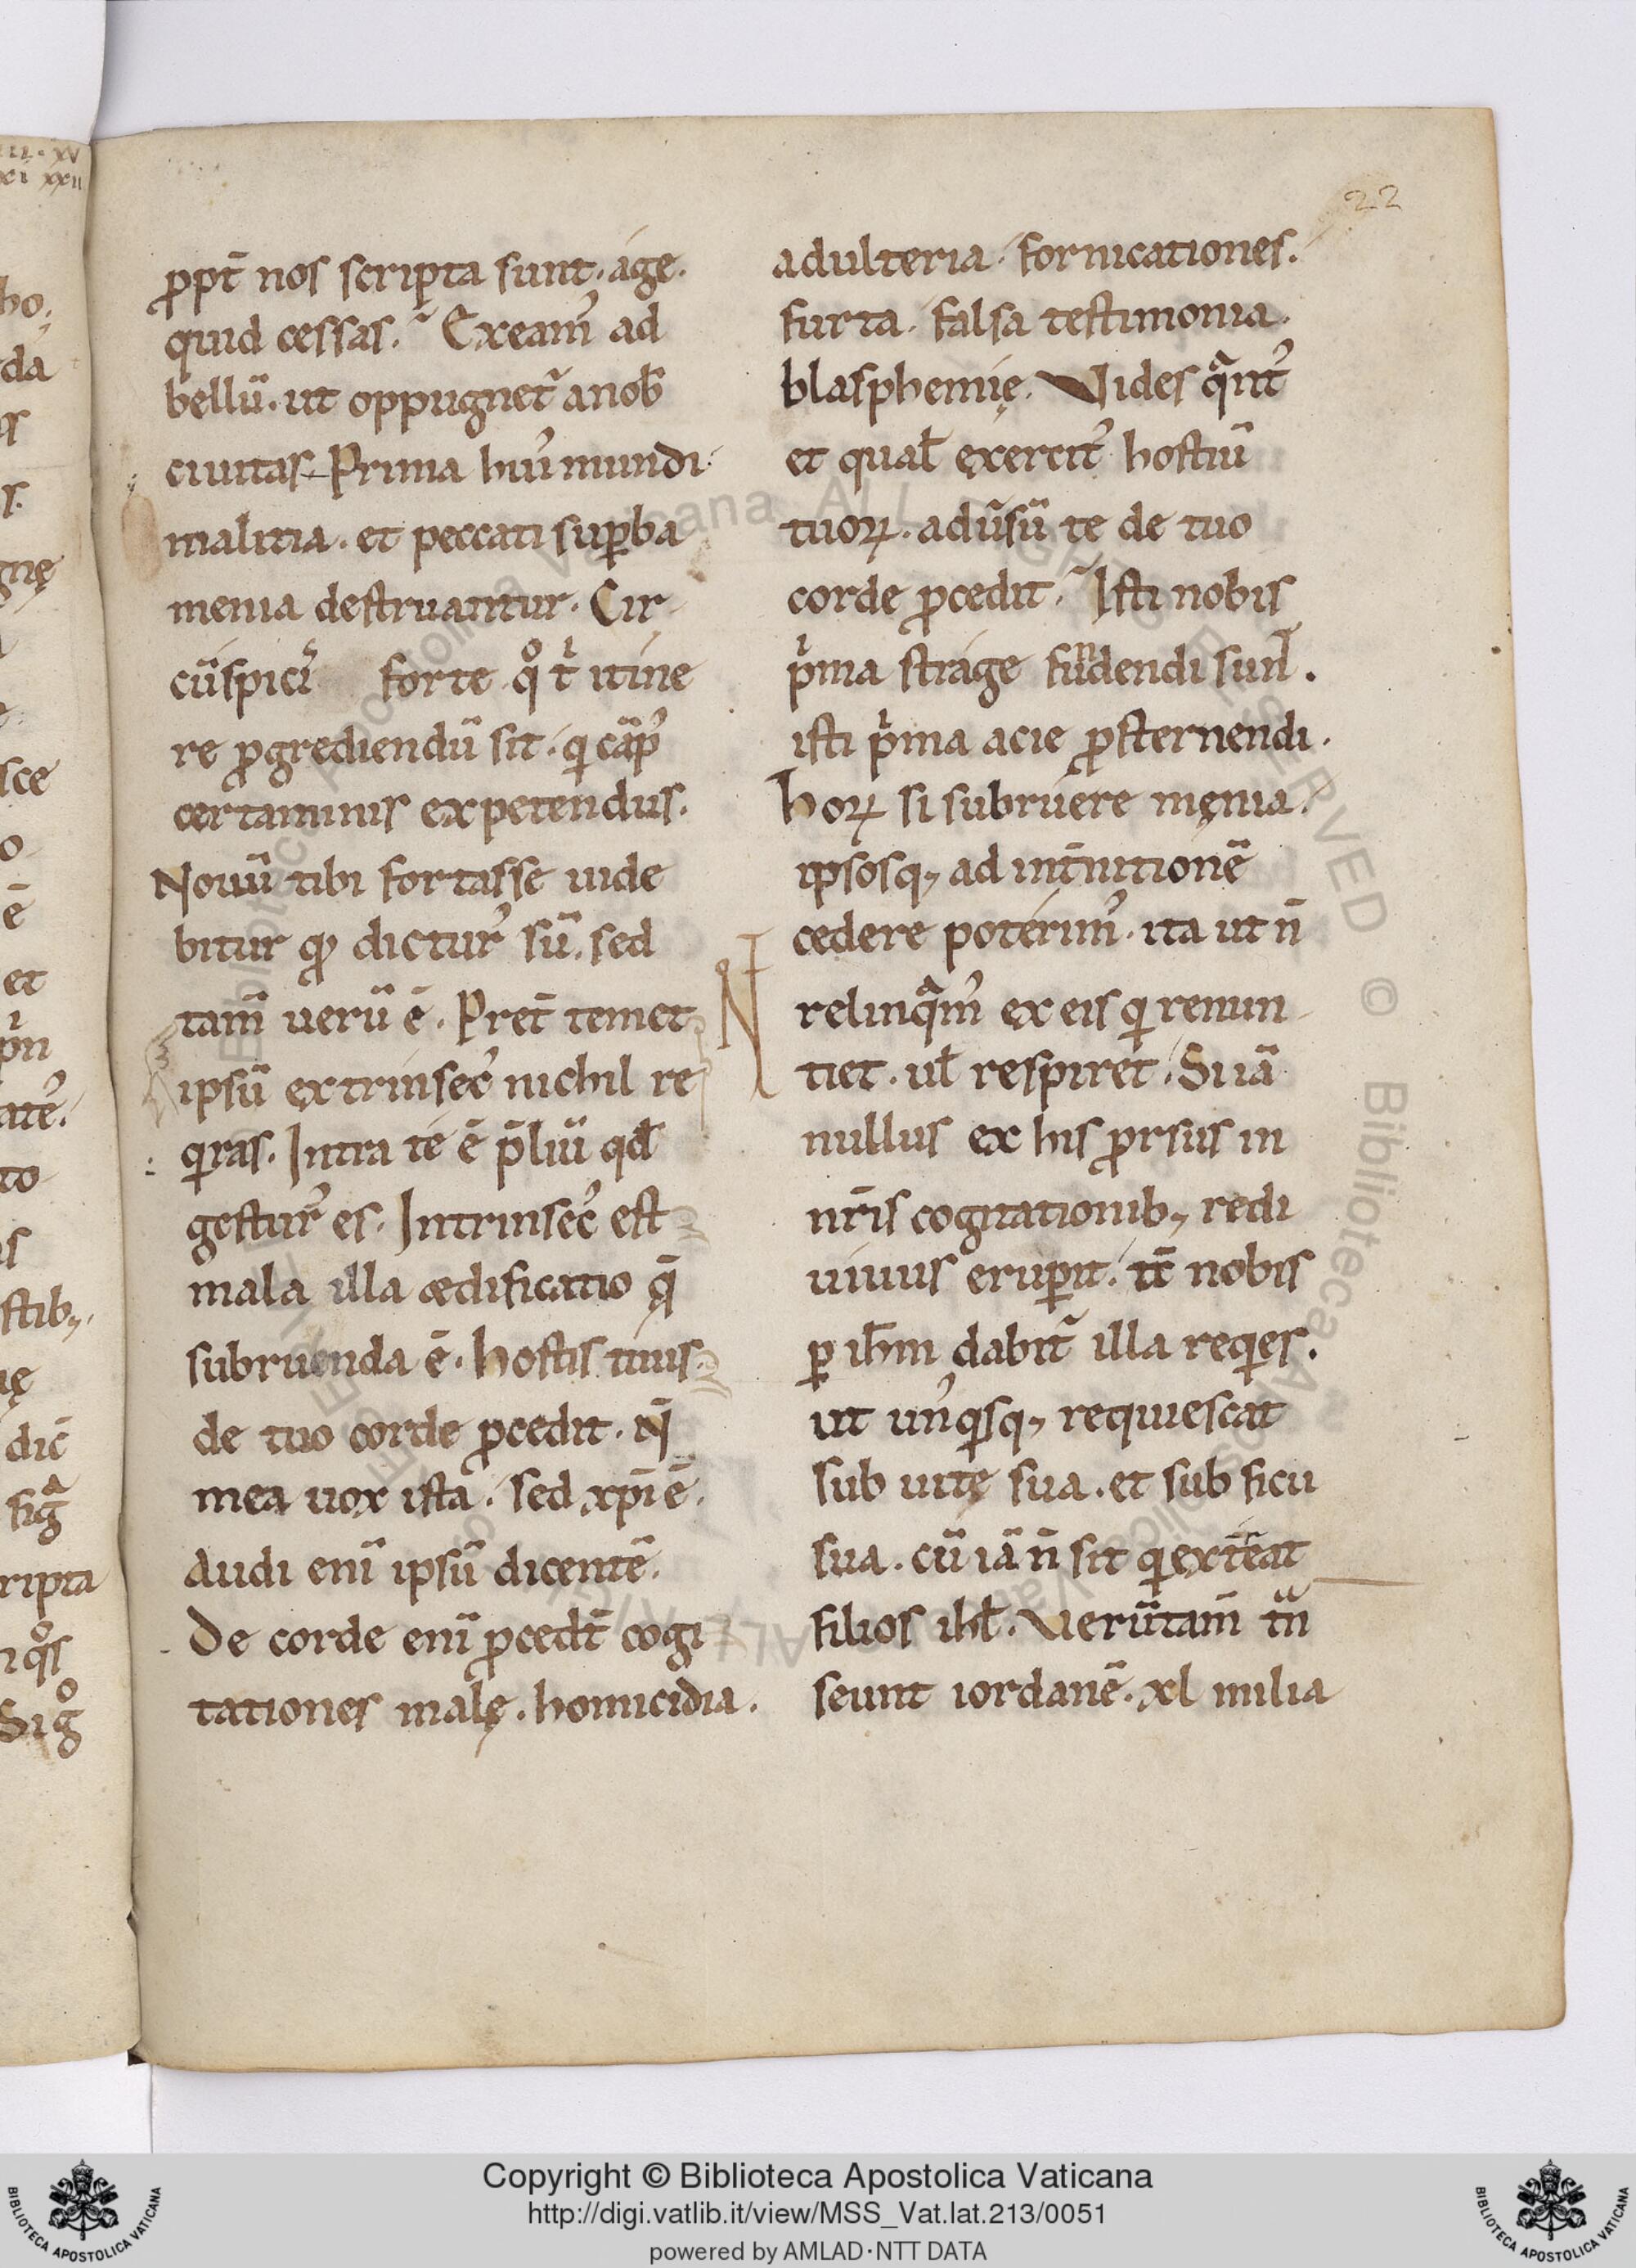 22
ꝓpt̄ nos scripta sunt. age.
quid cessas. Exeam᾽ ad
bellū. ut oppugnet᷑ anob̄
ciuitas. Prima hui᾽ mundi
malitia. et peccati suꝑba
menia destruantur. Cir
cūspici᷑ forte qͦ t̄ itine
re ꝓgrediendū sit. qi cāp᾽
certaminis expetendus.
Nouū tibi fortasse uide
bitur qͦ dictur᾽ sū. sed
tam̄ uerū ē. Pret̄ temet
ipsū extrinsec᾽ nichil re
qiras. Intra te ē p̄liū qd̄
gestur᾽ es. Intrinsec᾽ est
mala illa ędificatio q̄
subruenda ē. hostis tuus
de tuo corde ꝓcedit. N̄
mea uox ista. sed xp̄i ē.
Audi enī ipsū dicentē.
De corde enī ꝓcedt̄ cogi
tationes malę. homicidia.
adulteria. fornicationes.
furta. falsa testimonia.
blasphemię. Vides qͣnt᾽
et qual̄ exercit᾽ hostiū
tuoꝝ. adūsū te de tuo
corde ꝓcedit. Isti nobis
pͥma strage fundendi sun̄t.
isti pͥma acie ꝓsternendi.
hoꝝ si subruere męnia.
ipsosq; ad int̄nitionē
cedere poterim᾽. ita ut n̄
relinqͣm᾽ ex eis qi renun
tiet. ul̄ respiret. Si iā
nullus ex his ꝓrsus in
nr̄is cogitationib; redi
uiuus eruꝑit. tc̄ nobis
ꝑ ih̄m dabit᷑ illa reqies.
ut un᾽qisq; requiescat
sub uitę sua. et sub ficu
sua. cū iā n̄ sit qi ext̄reat
filios ihl̄. Uerūtam̄ tͣn
seunt iordanē. xl milia
Copyright © Biblioteca Apostolica Vaticana
http://digi.vatlib.it/view/MSS_Vat.lat.213/0051
powered by AMLAD·NTT DATA